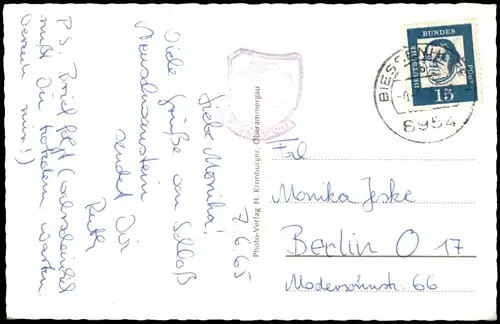 7.6.65
Liebe Monika!
Viele Grüße von Schloß
Neuschwanstein
sendet Dir
Ruth
P.S. Brief folgt (wahrscheinlich
mußt Du trotzdem warten.
nur!)
Photo-Verlag H. Kronburger, Oberammergau
Frl.
Monika Jeske
Berlin O 17
Modersohnstr. 66
DEUTSCHE BUNDESPOST
15
8954